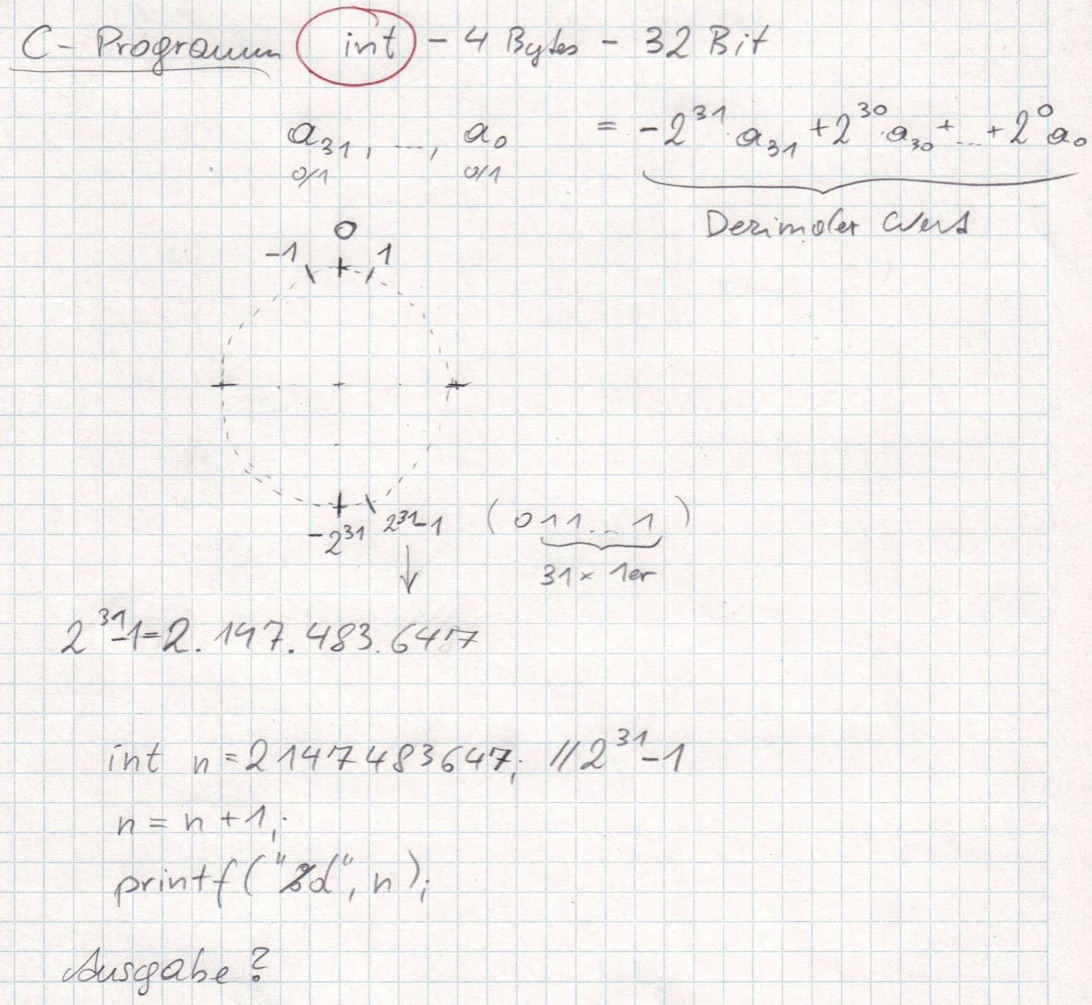 C-Programm int - 4 Bytes - 32 Bit
a₃₁, ..., a₀ = -2³¹·a₃₁ + 2³⁰·a₃₀ + ... + 2⁰a₀
0/1 0/1
Dezimaler Wert
0
-1 1
-2³¹ 2³¹-1 (011...1)
31× 1er
2³¹-1=2.147.483.647
int n=2147483647; //2³¹-1
n = n + 1;
printf("%d", n);
Ausgabe?